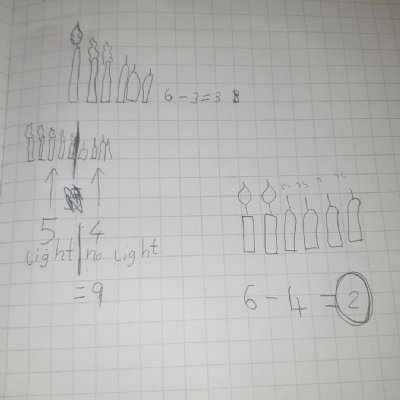 6 - 3 = 3
5 | 4
light | no light
= 9
6 - 4 = 2